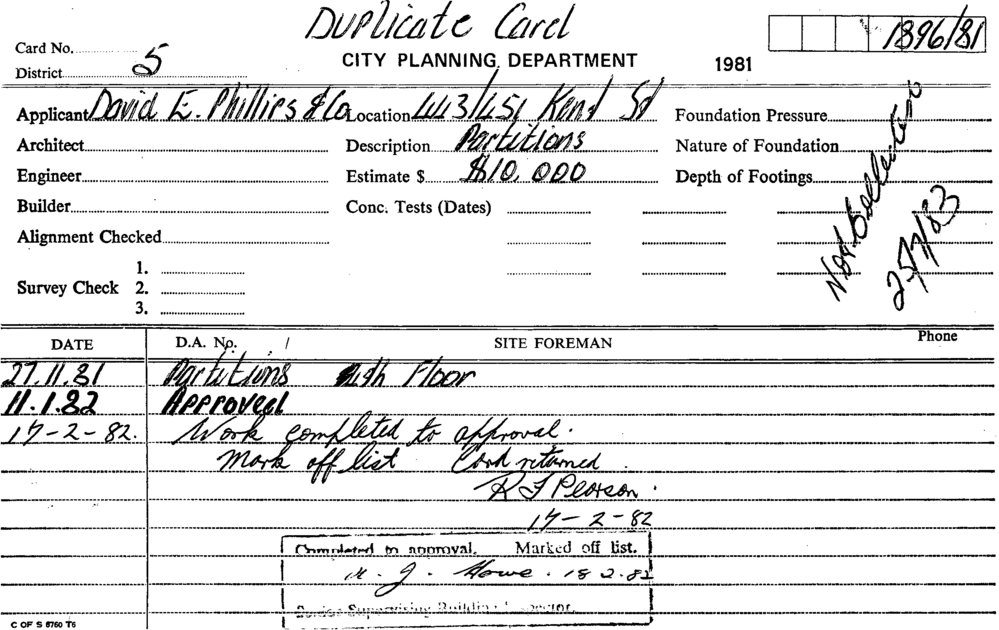 Duplicate Card
1896/81
Card No.
CITY PLANNING DEPARTMENT 1981
District 5
Applicant David E. Phillips & Co Location 443/451 Kent St Foundation Pressure
Architect Description Partitions Nature of Foundation
Engineer Estimate $ $10,000 Depth of Footings
Builder Conc. Tests (Dates)
Not
25/7/83
Alignment Checked
1.
Survey Check 2.
3.
DATE D.A. No. / SITE FOREMAN Phone
27.11.81 Partitions 4th Floor
11.1.82 Approved
17-2-82. Work completed to approval.
Mark off list Card returned.
R F Pearson.
17-2-82
Completed to approval. Marked off list.
J. Howe. 18.2.82
Senior Supervising Building Inspector.
C OF S 8760 T6